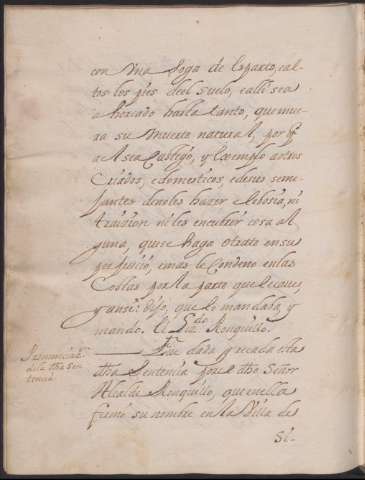 con vna soga de esparto, al-
tos los pies del suelo, e alli sea
ahorcado hasta tanto, que mue-
ra su muerte natural, por q̃
a el sea Castigo, y exemplo a otros
Criados, e domesticos, e de sus seme-
jantes de no les hazer alebosia, ni
traicion ni les encubrir cosa al-
guna, que se haga o trate en su
perjuicio, e mas le Condeno en las
Costas por la parte que le caue,
y ansi dijo, que lo mandaba, y
mando. El Liz.do Ronquillo.
Pronunciaz.on
de la dha sen-
tencia
Fue dada y rezada esta
dha Sentencia por el dho Señor
Alcalde Ronquillo, que en ella
firmó su nombre en la Villa de
Si-